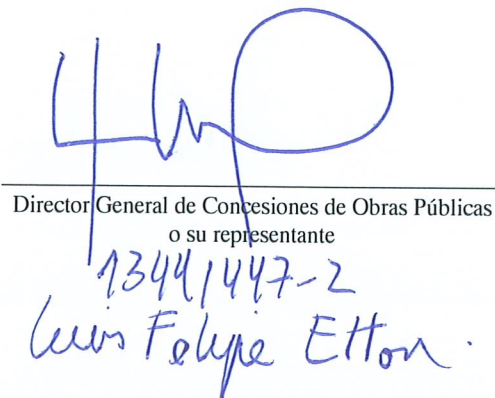 Director General de Concesiones de Obras Públicas
o su representante
13441447-2
Luis Felipe Elton.